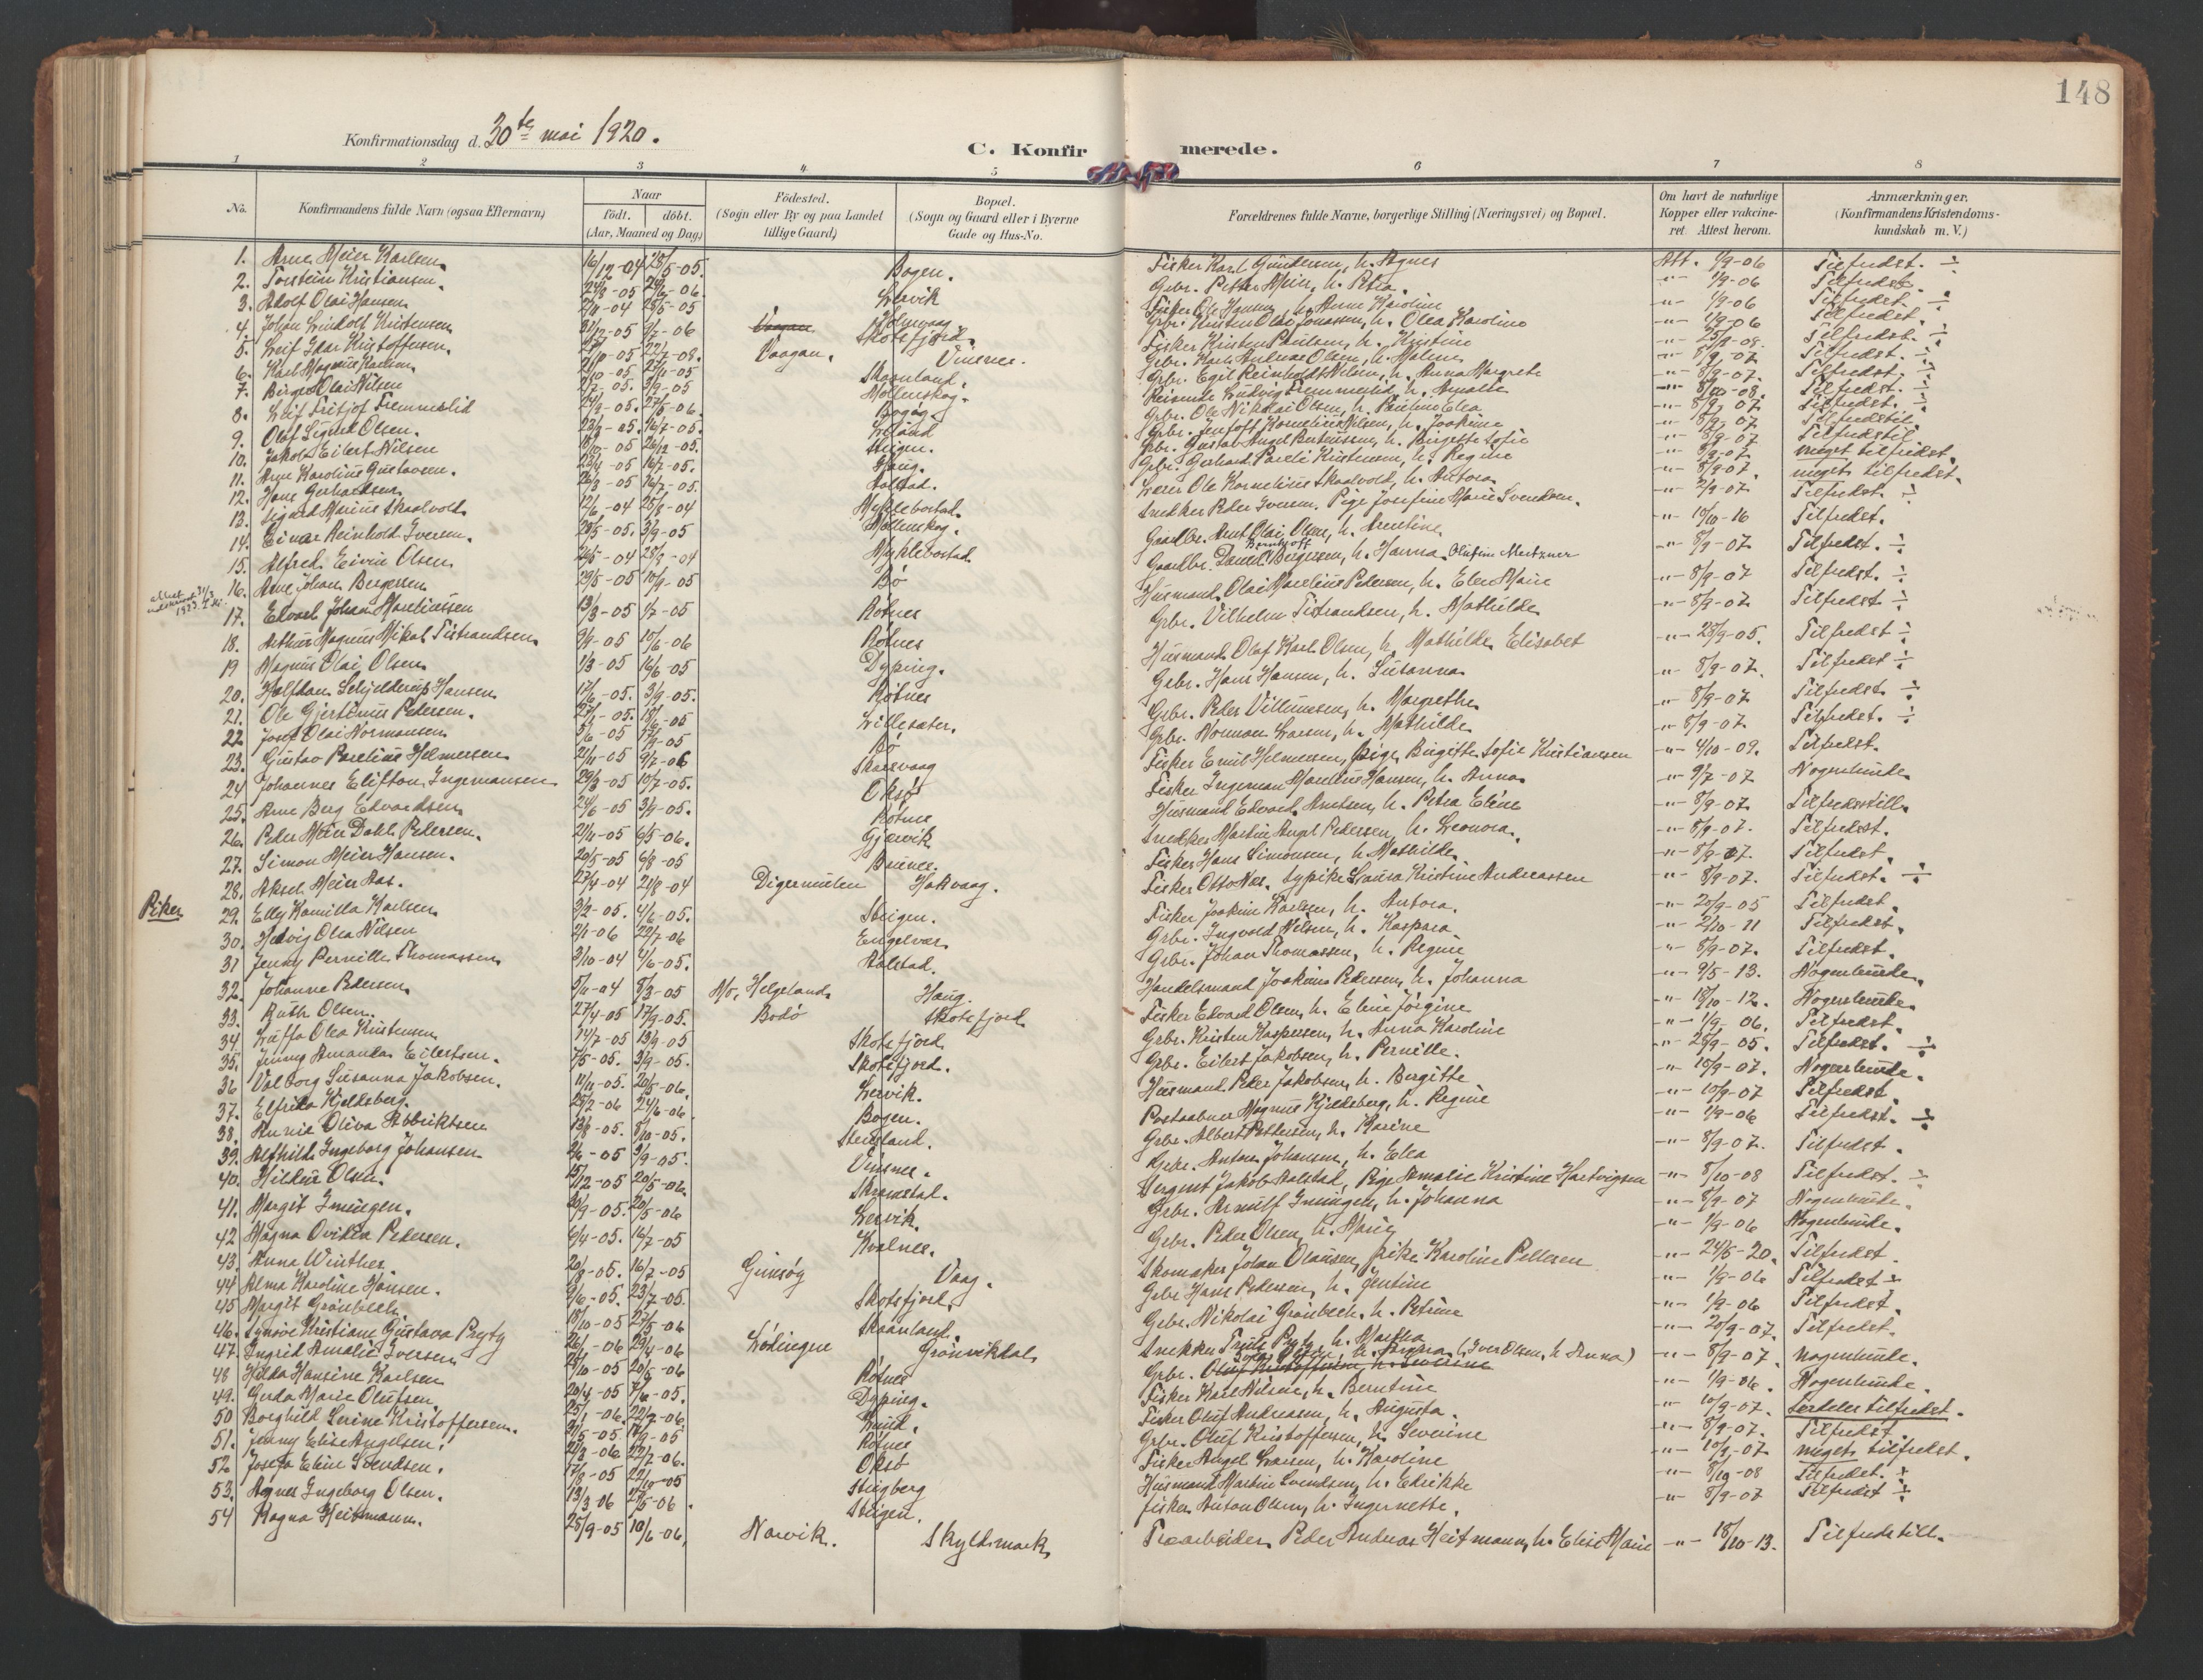 148
Konfirmationsdag d. 30te mai 1920.
C. Konfirmerede.
1 2 3 4 5 6 7 8
No. Konfirmandens fulde Navn (ogsaa Efternavn) Naar født. døbt. (Aar, Maaned og Dag) Födested. (Sogn eller By og paa Landet tillige Gaard) Bopæl. (Sogn og Gaard eller i Byerne Gade og Hus-No. Forældrenes fulde Navne, borgerlige Stilling (Næringsvei) og Bopæl. Om havt de naturlige Kopper eller vakcineret. Attest herom. Anmærkninger. (Konfirmandens Kristendomskundskab m. V.)
1. Arne Meier Karlsen 16/12-04 28/5-05. Bogen. Fisker Karl Gundersen, h. Agnes Att. 1/9-06 Tilfredst. ÷
2. Torstein Kristiansen. Lervik Gbr. Petter Meier, h. Petra. -"- 1/9-06 Tilfredst.
3. Adolf Olai Hansen Holmvaag Fisker Ole Hansen, h. Anne Karoline -"- 1/9-06 Tilfredst. ÷
4. Johan Leidolf Kristensen 31/12-05 Vaagan Skotsfjord. Gbr. Kristen Olai Jonassen, h. Olea Karoline -"- 1/9-06 Tilfredst.
5. Leif Idar Kristoffersen. Vaagan. Vinsnes. Fisker Kristen Paulsen, h. Kristine Tilfredst. ÷
6. Karl Magnus Karlsen Skaanland. Gbr. Karl Andreas Olsen, h. Malene -"- 8/9-07 Tilfredst. ÷
7. Birger Olai Nilsen 3/9-05 Mollenskog. Gbr. Egil Reinholdt Nilsen, h. Anna Margrete -"- 8/9-07. Tilfredst. ÷
8. Leif Fritjof Fremmerlid Bogøy Reisende Ludvig Fremmerlid, h. Amalie -"- 8/10-08. Tilfredst. ÷
9. Olaf Sigurd Olsen. 16/7-05. Gbr. Ole Nikolai Olsen, h. Elea -"- 8/9-07 Tilfredst. ÷
10. Jakob Eilert Nilsen 26/12-05. Steigen. Gbr. Jentoft Kornelius Nilsen, h. Joakime -"- 8/9-07 Tilfredstil.
11. Arne Karolius Gustavsen. 16/7-05. Haug. Gbr. Gustav Angel Berteussen, h. Birgitte Sofie -"- 8/9-07 Tilfredstil.
12. Hans Gerhardsen 16/7-05. Aalstad. Gbr. Gerhard Pareli Kristensen, h. Regine -"- 8/9-07 meget tilfredst.
13. Sigurd Marius Skaalvold 12/6-04 28/8-04 Myklebostad. Lærer Ole Kornelius Skaalvold, h. Antora -"- 8/9-07. meget tilfredst.
14. Einar Reinhold Iversen. 28/5-05. 3/9-05 Mollenskog. Snekker Peder Iversen. Pige Josefine Marie Svendsen. -"- 2/9-07 Tilfredst. ÷
15. Alfred Eivin Olsen 28/8-04 Myklebostad Gaardbr. Arnt Olai Olsen, h. Arentine -"- 10/10-16 Tilfredst.
16. Arne Johan Bergersen 29/5-05 10/9-05 Bø Gaardbr. Daniel Berntoft Bergersen, h. Hanna Olufine Metzner -"- 8/9-07 Tilfredst. ÷
17. Edvard Johan Mareliussen 13/3-05 1/7-05 Røtnes Husmand Olai Marelius Pedersen, h. Elen Marie -"- 8/9-07 Tilfredst ÷
18. Arthur Magnus Mikal Tistrandsen 9/9-05 10/6-06 Røtnes Gbr. Vilhelm Tistrandsen, h. Mathilde -"- 8/9-07 Tilfredst ÷
19 Magnus Olai Olsen 1/3-05 16/6-05 Dyping. Husmand Olaf Karl Olsen, h. Mathilde Elisabet -"- 28/9-05. Tilfredst ÷
20. Halfdan Schjelderup Hansen 17/6-05. 3/9-05. Røtnes Gbr. Hans Hansen, h. Susanna -"- 8/9-07 Tilfredst ÷
21. Ole Gjertinius Pedersen. 18/6-05 Lillesæter. Gbr. Peder Villumsen, h. Margrethe -"- 8/9-07 Tilfredst ÷
22 Josef Olai Normansen 5/6-05 Bø Gbr. Norman Larsen, h. Mathilde -"- 8/9-07. Tilfredst. ÷
23. Gustav Parelius Helmersen 21/11-05 9/7-06 Skaasvaag Fisker Emil Helmersen, pige Birgitte Sofie Kristiansen -"- 4/10-09. Tilfredst.
24 Johannes Eliston Ingemansen 29/3-05 10/7-05. Oksø Fisker Ingeman Marelius Hansen, h. Anna -"- 9/7-07 Nogenlunde
25. Arne Berg Edvardsen 24/6-05 3/9-05. Røtnes Husmand Edvard Arntsen, h. Petra Eline -"- 8/9-07 Tilfredsstill.
26. Peder Meier Dahl Pedersen. 21/11-05 6/5-06. Gjærvik Snekker Martin Angel Pedersen, h. Leonora. -"- 8/9-07. Tilfredst.
27. Simon Meier Hansen. 20/5-05 6/8-05 Brines. Fisker Hans Simonsen, h. Mathilde -"- 8/9-07. Tilfredst.
28. Aksel Meier Aas. 27/4-04 21/8-04 Digermulen Hakvaag. Fisker Otto Nes. sypike Laura Kristine Andreassen -"- 8/9-07. Tilfredst. ÷
Piker
29. Elly Kamilla Karlsen 3/2-05. 4/6-05. Steigen. Fisker Joakim Karlsen, h. Antora. -"- 20/9-05 Tilfredst.
30. Hedvig Olea Nilsen 2/1-06 22/7-06 Engelvær Gbr. Ingvald Nilsen, h. Kaspara -"- 2/10-11 Tilfredst.
31 Jenny Pernille Thomassen 3/10-04 4/6-05. Aalstad. Gbr. Johan Thomassen, h. Regine -"- 8/9-07. Tilfredst.
32. Johanne Pedersen 5/11-04 8/3-05 No, Helgeland Haug. Handelsmand Joakim Pedersen, h. Johanna -"- 9/5-13. Nogenlunde.
33. Ruth Olsen. 27/4-05 17/9-05. Bodø Skotsfjord Fisker Edvard Olsen, h. Eline Jørgine -"- 18/10-12. Nogenlunde.
34 Luffa Olea Kristensen 14/7-05 13/9-05 Skotsfjord. Gbr. Kristen Kaspersen, h. Anna Karoline -"- 1/9-06. Tilfredst.
35. Jenny Amanda Eilertsen. 7/5-05. 3/9-05. Skotsfjord. Gbr. Eilert Jakobsen, h. Pernille. -"- 26/9-05. Tilfredst. ÷
36 Valborg Susanna Jakobsen. 11/11-05. 20/5-06. Leirvik. Husmand Peder Jakobsen, h. Bergitte -"- 10/9-07. Nogenlunde.
37. Elfrida Kjeldsberg. 25/2-06 24/6-06. Bogen. Postaabner Magnus Kjeldsberg, h. Regine -"- 10/9-07 Tilfredst.
38. Annie Oliva Albriktsen 13/8-05. 8/10-05. Steinsland. Gbr. Albert Pettersen, h. Karine -"- 1/9-06 Tilfredst. ÷
39. Alfhild Ingeborg Johansen 3/9-05. Vinsnes. Gbr. Anton Johansen, h. Elea -"- 8/9-07. Tilfredst.
40. Hildur Olsen. 15/12-05 20/5-06. Skramstad. Sergent Jakob Aalstad, Pige Amalie Kristine Hartvigsen -"- 8/10-08 Tilfredst. ÷
41. Margit Imingen. 20/9-05. 20/5-06 Leirvik. Gbr. Arnulf Imingen, h. Johanna -"- 8/9-07 Nogenlunde.
42 Magna Ovidia Pedersen. 6/4-05. 16/7-05 Kvalnes. Gbr. Peder Olsen, h. Marie -"- 1/9-06 Nogenlunde.
43. Anna Winther. 20/8-05. 16/7-05 Gimsøy Vaag. Skomaker Johan Olausen, pike Karoline Pettersen -"- 24/5-20. Tilfredst.
44 Alma Karoline Hansen. 23/7-05. Skotsfjord Gbr. Hans Pedersen, h. Jentine -"- 1/9-06 Tilfredst ÷
45 Margit Grønbech. 18/10-05 27/5-06 Skaanland. Gbr. Nikolai Grønbech. h. Petrine -"- 1/9-06 Tilfredst.
46. Synøve Kristiane Gustava Prytz 26/1-06 29/4-06 Lødingen Grønvikdal Snekker Truls Prytz, h. Martha -"- 20/9-07. Tilfredst.
47 Ingrid Amalie Iversen 25/10-05 20/5-06 Røtnes Gbr. Oluf Kristoffersen, h. Severine (Iver Olsen, h Anna) -"- 8/9-07. nogenlunde.
48 Hilda Hansine Karlsen 20/4-05 7/6-05. Dyping. Fisker Karl Nilsen, h. Berntine -"- 1/9-06. Nogenlunde.
49. Gerda Marie Olufsen 25/1-06. 22/7-06. Lund. Fisker Oluf Andreassen, h. Augusta. -"- 10/9-07. særdeles tilfredst.
50 Borghild Serine Kristoffersen. Røtnes Gbr. Oluf Kristoffersen, h. Severine -"- 8/9-07. Tilfredst.
51. Jenny Elise Angelsen. 22/7-06. Oksø Fisker Angel Larsen, h. Karoline -"- 10/9-07 meget tilfredst.
52 Josefa Eline Svendsen. 17/9-05 22/10-05 Stegberg Husmand Martin Svendsen, h. Edrikke -"- 8/10-08 Tilfredst. ÷
53. Agnes Ingeborg Olsen. 13/3-06 27/5-06. Steigen. fisker Anton Olsen, h. Ingernette. -"- 8/9-07 Tilfredst ÷
54 Ragna Heitmann. 28/9-05 10/6-06. Narvik. Skyldsmark Træarbeider Peder Andreas Heitmann, h. Elise Marie -"- 18/10-13. Tilfredstill.